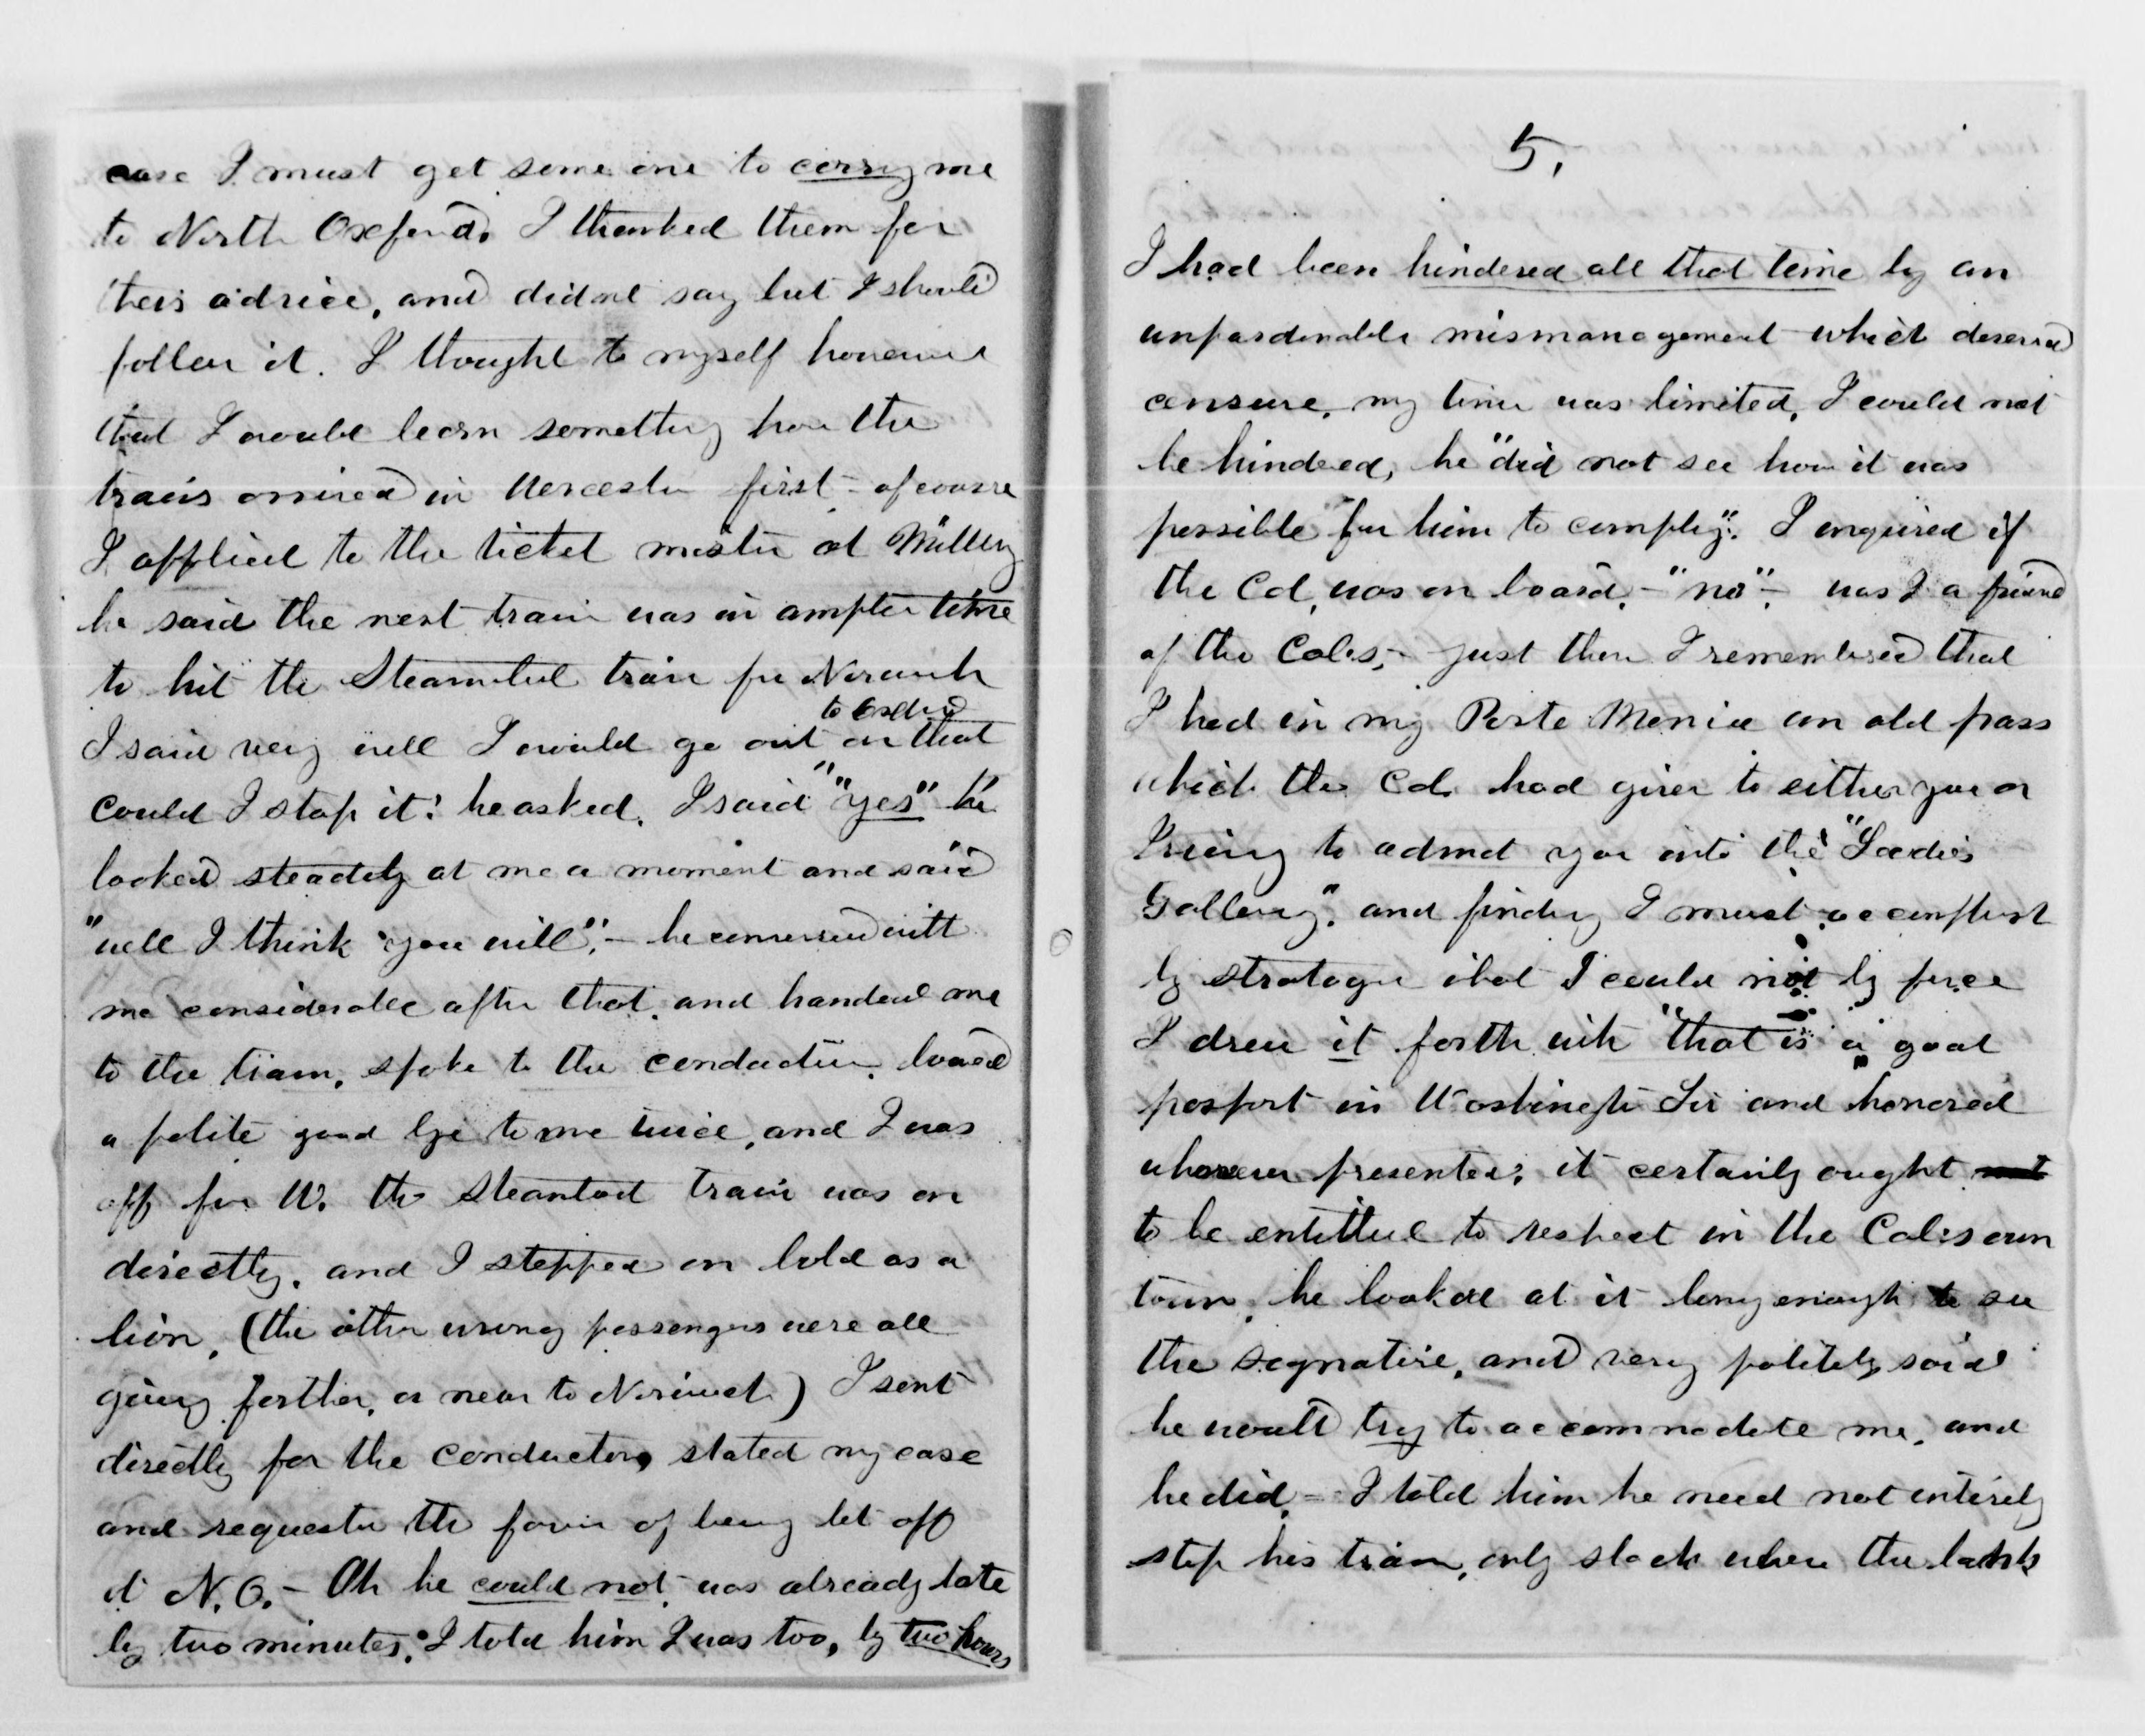 case I must get some one to carry me
to North Oxford. I thanked them for
their advice, and did not say but I should
follow it. I thought to myself however
that I would learn something how the
trains arrived in Worcester first - of course
I applied to the ticket master at Millbury
he said the next train was in ample time
to hit the Steamboat train for Norwich
to Oxford
I said very well I would go out on that
could I stop it? he asked. I said "yes" he
looked steadily at me a moment and said
"well I think you will"; - he conversed with
me considerable after that, and handed me
to the train, spoke to the conductor, bowed
a polite good bye to me twice, and I was
off for W. the Steamboat train was on
directly, and I stepped on bold as a
lion, (the other wrong passengers were all
going farther, or near to Norwich) I sent
directly for the conductor, stated my case
and requested the favor of being let off
at N.O. - Oh he could not, was already late
by two minutes. I told him I was too, by two hours
5.
I had been hindered all that time by an
unpardonable mismanagement which deserved
censure, my time was limited, I could not
be hindered, he "did not see how it was
possible for him to comply". I enquired if
the Col, was on board, - "no" - was I a friend
of the Cols, - just then I remembered that
I had in my Porte Monia an old pass
which the Col. had given to either you or
Irving to admit you into the "Ladies
Gallery". and finding I must accomplish
by stratagem what I could not by force
I drew it forth with "that is a good
passport in Washington Sir and honored
whenever presented, it certainly ought
to be entitled to respect in the Cols own
town, he looked at it long enough to see
the signature, and very politely said
he would try to accommodate me, and
he did, - I told him he need not entirely
stop his train, only slack where the banks